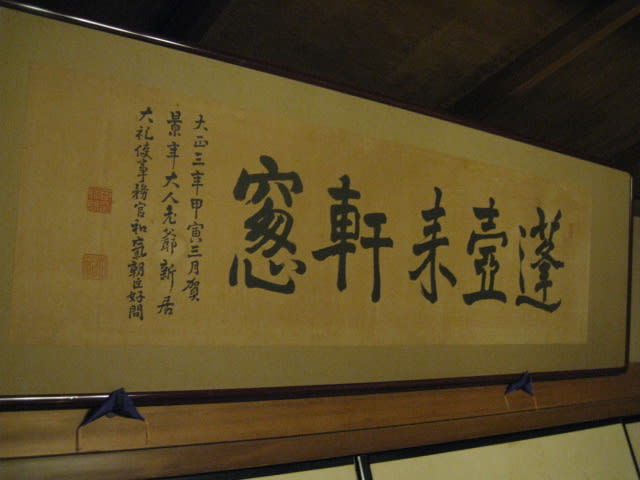 蓬壺来軒窓
大正三年甲寅三月賀
景年大人老爺新居
大礼使事務官和気朝臣好問